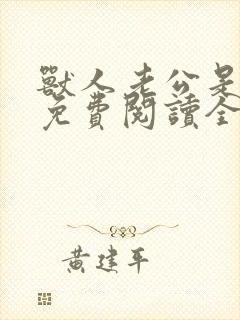 獸人老公是
免費閱讀全
黃建平